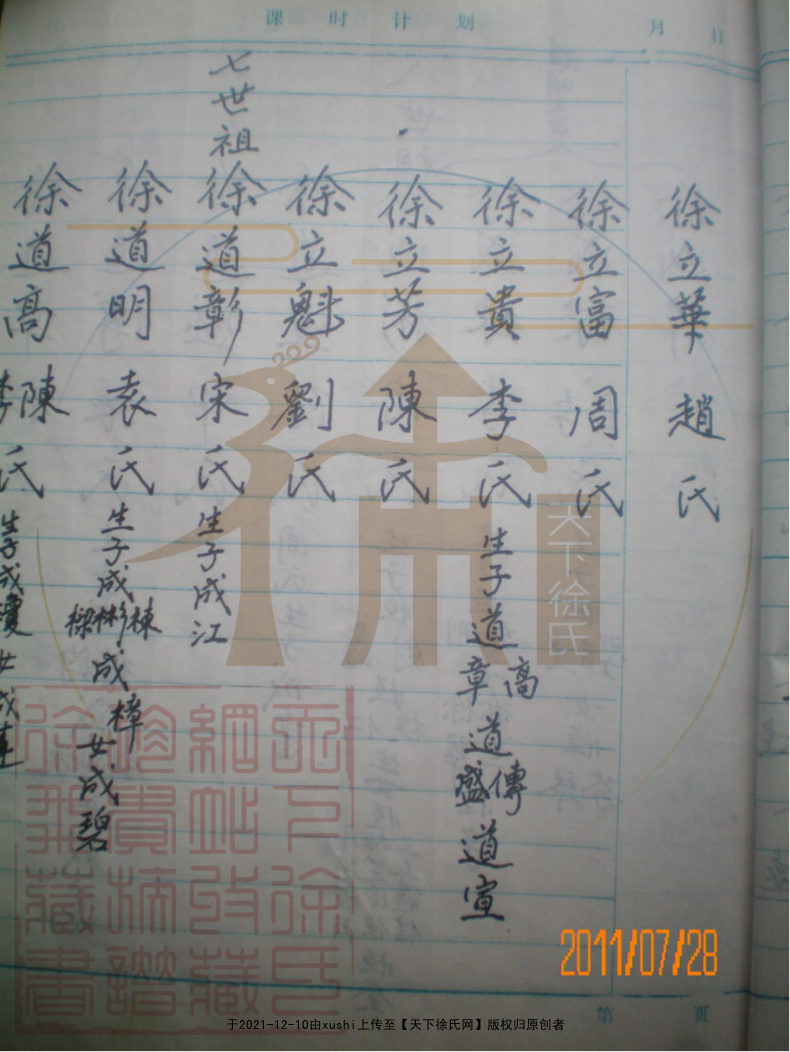 课时计划
月 日
徐立華 趙氏
徐立富 周氏
徐立貴 李氏 生子道高章 道傳盛 道宣
徐立芳 陳氏
徐立魁 劉氏
七世祖
徐道彰 宋氏 生子成江
徐道明 袁氏 生子成棟彬樑 成樟 女成碧
徐道高 陳李氏 生子成瓊 女成蓮
天下徐氏
2011/07/28
第 页
于2021-12-10由xushi上传至【天下徐氏网】版权归原创者